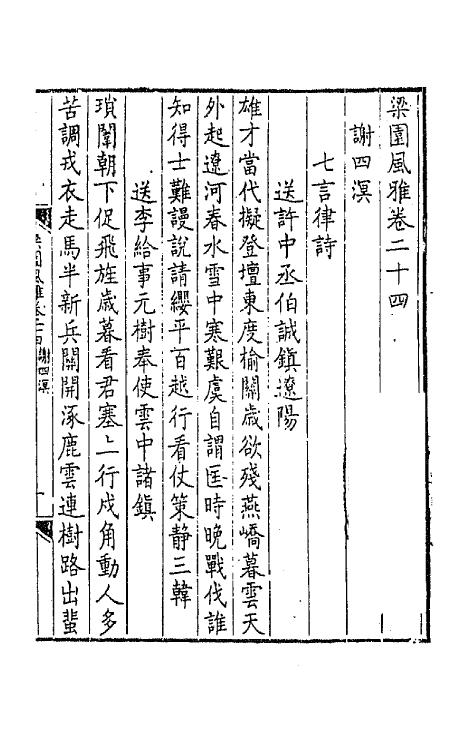 梁園風雅卷二十四
謝四溟
七言律詩
送許中丞伯誠鎮遼陽
雄才當代擬登壇東度榆關歲欲殘燕嶠暮雲天
外起遼河春水雪中寒艱虞自謂匡時晚戰伐誰
知得士難謾說請纓平百越行看仗策静三韓
送李給事元樹奉使雲中諸鎮
瑣闈朝下促飛旌歲暮看君塞上行戍角動人多
苦調戎衣走馬半新兵關開涿鹿雲連樹路出蜚
梁園風雅卷二十四 謝四溟 一